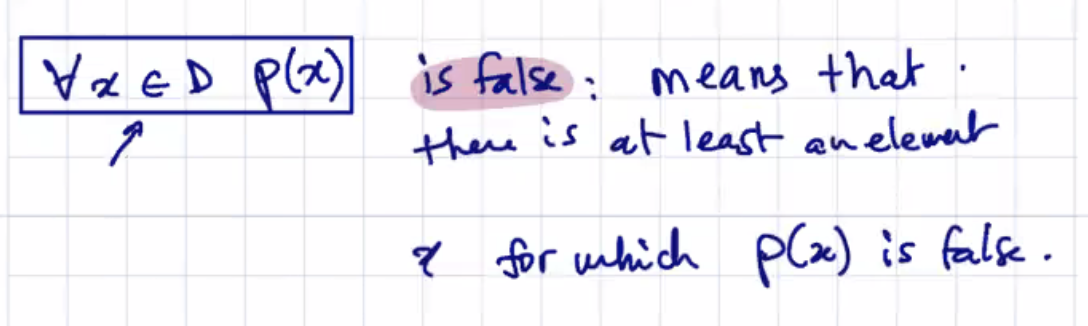 ∀x ∈ D p(x) is false : means that .
there is at least an element
x for which p(x) is false .